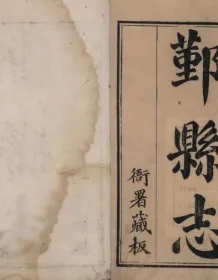 鄞縣志
衙署藏板